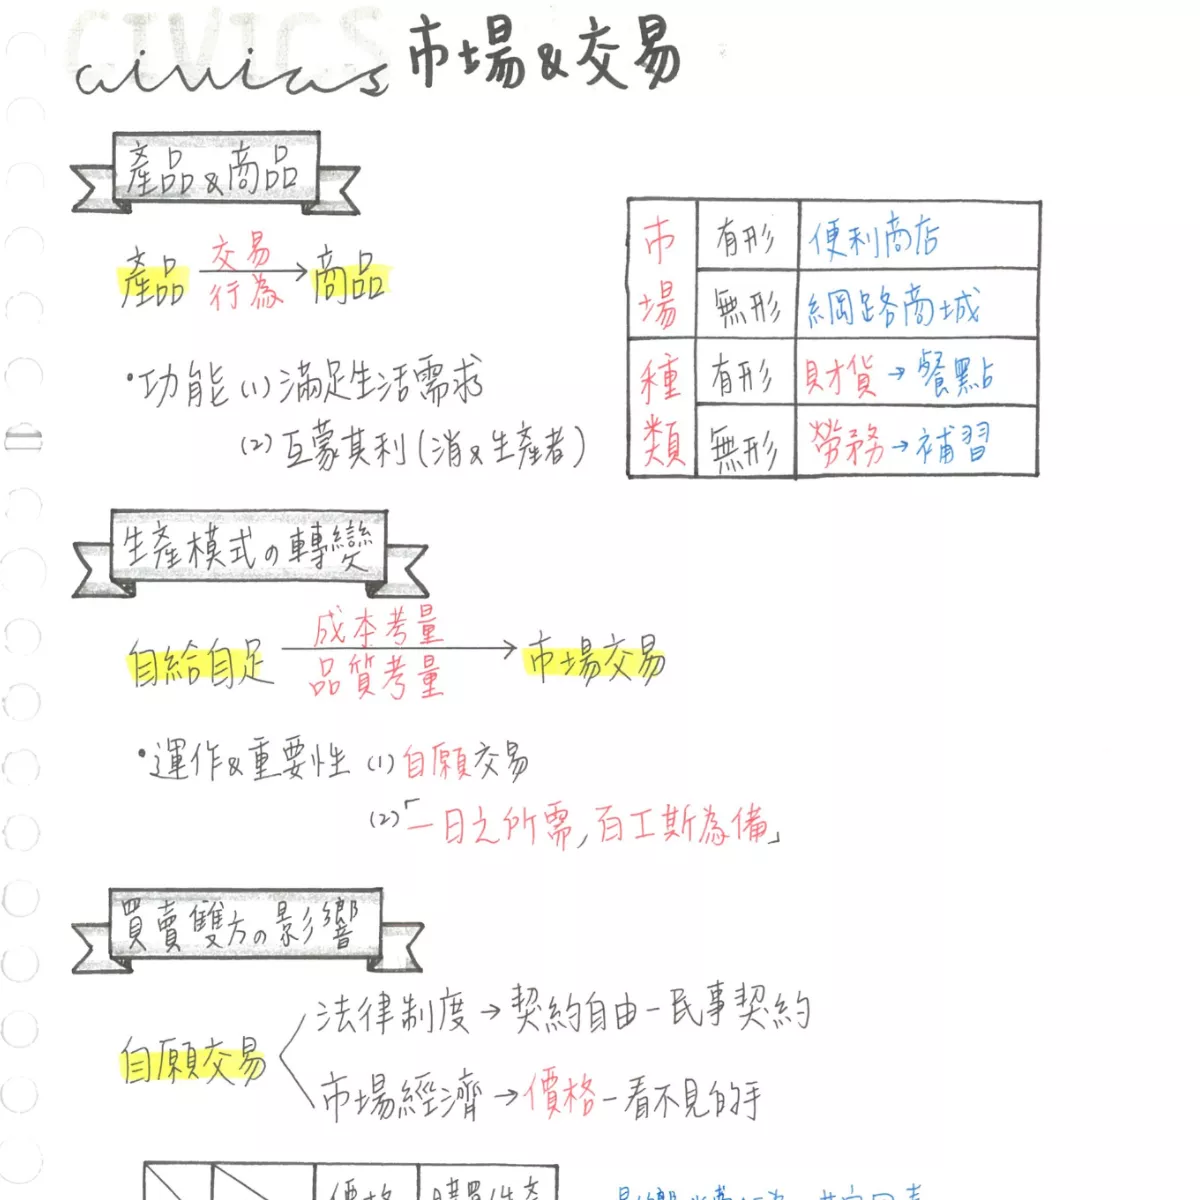 CIVICS
civics 市場&交易
產品&商品
產品 交易行為→ 商品
•功能 (1) 滿足生活需求
(2) 互蒙其利(消&生產者)
市場 有形 便利商店
無形 網路商城
種類 有形 財貨→餐點
無形 勞務→補習
生產模式の轉變
自給自足 成本考量 品質考量→ 市場交易
•運作&重要性 (1) 自願交易
(2)「一日之所需,百工斯為備」
買賣雙方の影響
自願交易
法律制度→契約自由-民事契約
市場經濟→價格-看不見的手
價格